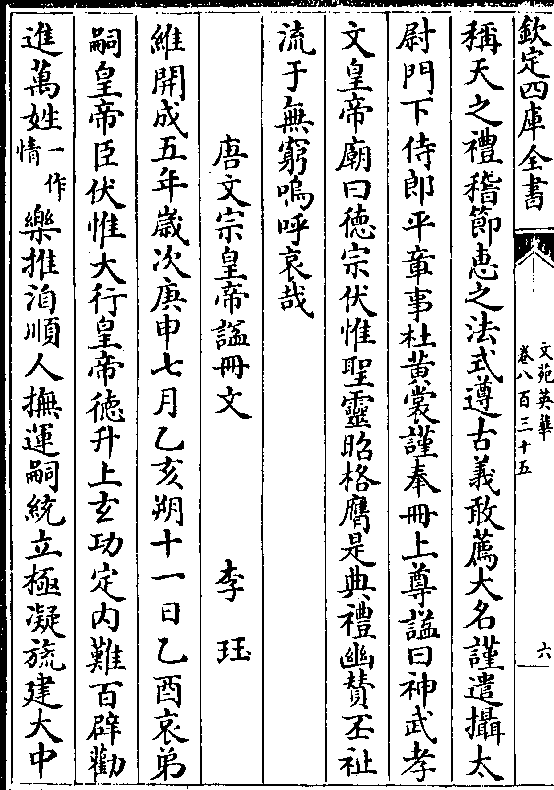 欽定四庫全書
文苑英華
卷八百三十五
六
稱天之禮稽節惠之法式遵古義敢薦大名謹遣攝太
尉門下侍郎平章事杜黄裳謹奉冊上尊諡曰神武孝
文皇帝廟曰德宗伏惟聖靈昭格膺是典禮幽賛丕祉
流于無窮嗚呼哀哉
唐文宗皇帝諡冊文 李珏
維開成五年歲次庚申七月乙亥朔十一日乙酉哀弟
嗣皇帝臣伏惟大行皇帝德升上玄功定内難百辟勸
進萬姓一作情樂推洎順人撫運嗣統立極凝旒建大中